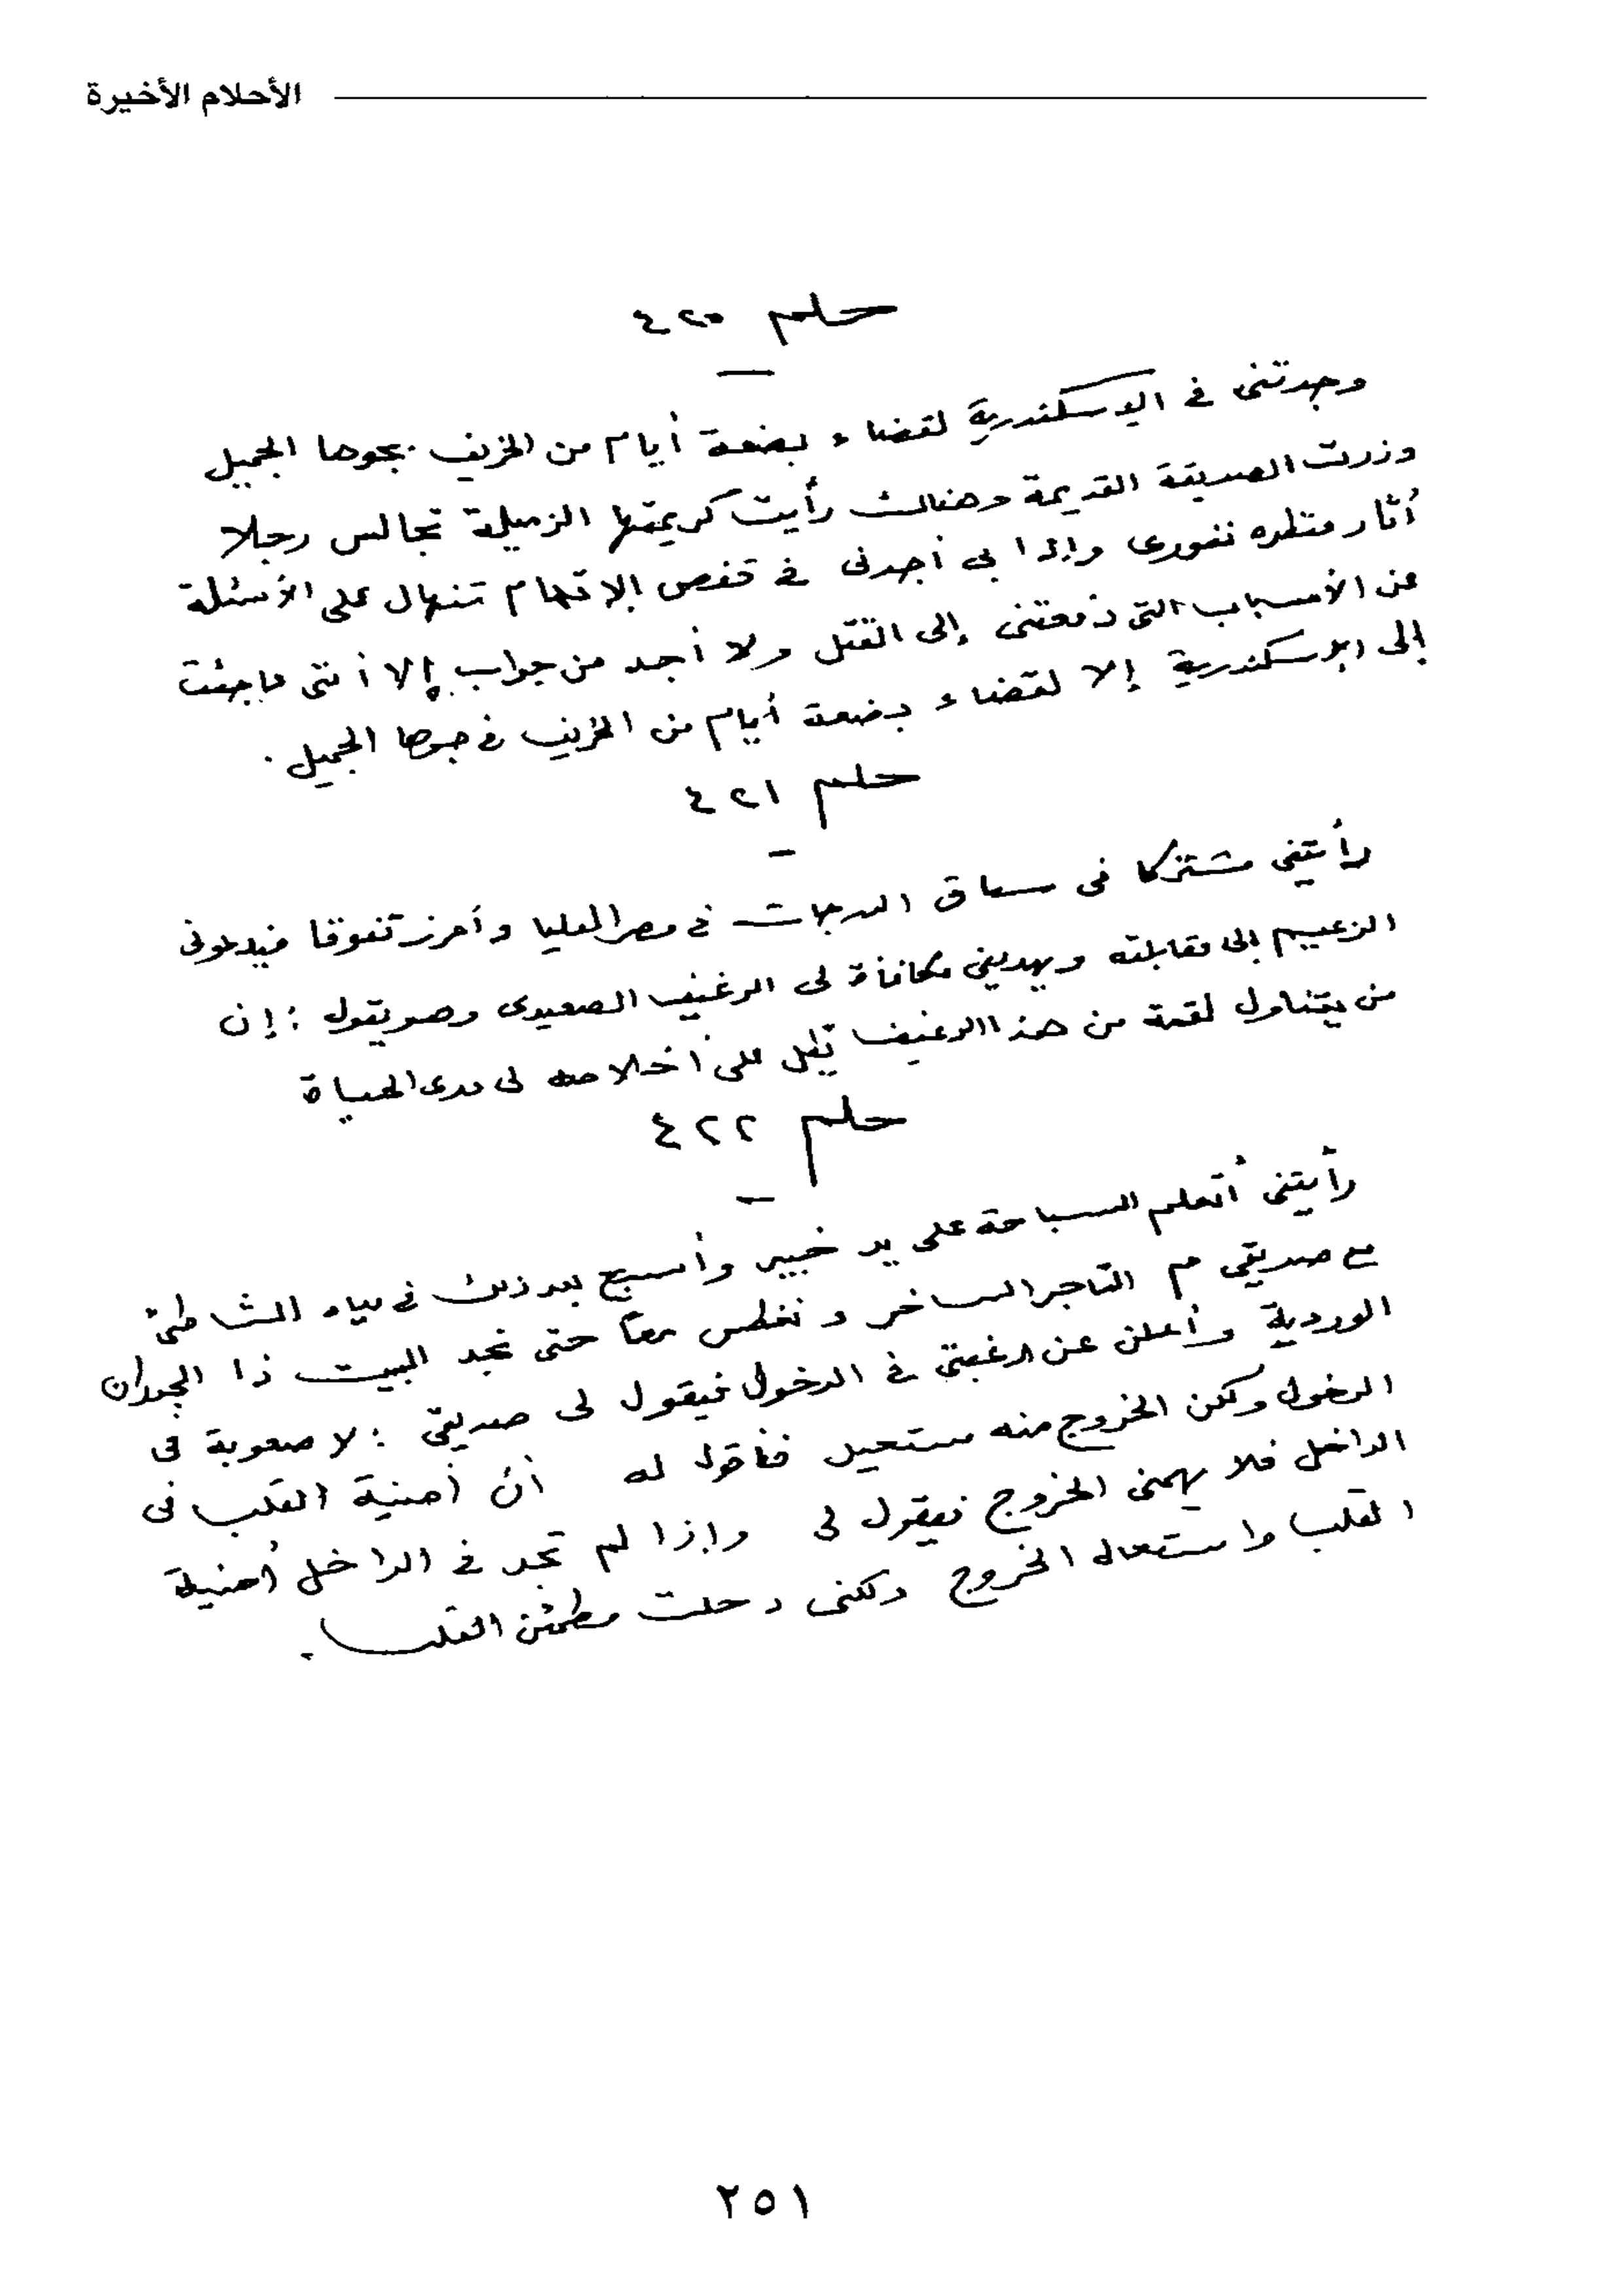 الأحلام الأخيرة
حلم ٤٢٠
وجدتنى فى الإسكندرية لقضاء بضعة أيام من الخريف بجوها الجميل
وزرت الصديقة القديمة وهنالك رأيت كريمتها الزميلة تجالس رجلا
أثار منظره نفورى وإذا بى أجدنى فى قفص الاتهام تنهال على الأسئلة
عن الأسباب التى دفعتنى إلى القتل ولا أجد من جواب إلا أننى ما جئت
إلى الإسكندرية إلا لقضاء بضعة أيام من الخريف فى جوها الجميل .
حلم ٤٢١
رأيتنى مشتركا فى سباق الدرجات فى مصر العليا وأحرز تفوقا فيدعونى
الزعيم إلى مقابلته ويهدينى مكافأة لى الرغيف الصعيدى وهو يقول : إن
من يتناول لقمة من هذا الرغيف على أخلاصه لى مدى الحياة
حلم ٤٢٢
رأيتنى أتعلم السباحة على يد خبير وأسبح بعد ذلك فى مياه الشاطئ
مع صديقى م التاجر الساخر ونغطس معًا حتى نجد البيت ذا الجدران
الوردية وأعلن عن رغبتى فى الدخول فيقول لى صديقى : لا صعوبة فى
الدخول ولكن الخروج منه مستحيل فأقول له أن أمنية القلب فى
الداخل فلا يهمنى الخروج فيقول لى وإذا لم تجد فى الداخل أمنية
القلب واستحال الخروج ولكنى دخلت مطمئن القلب .
٢٥١